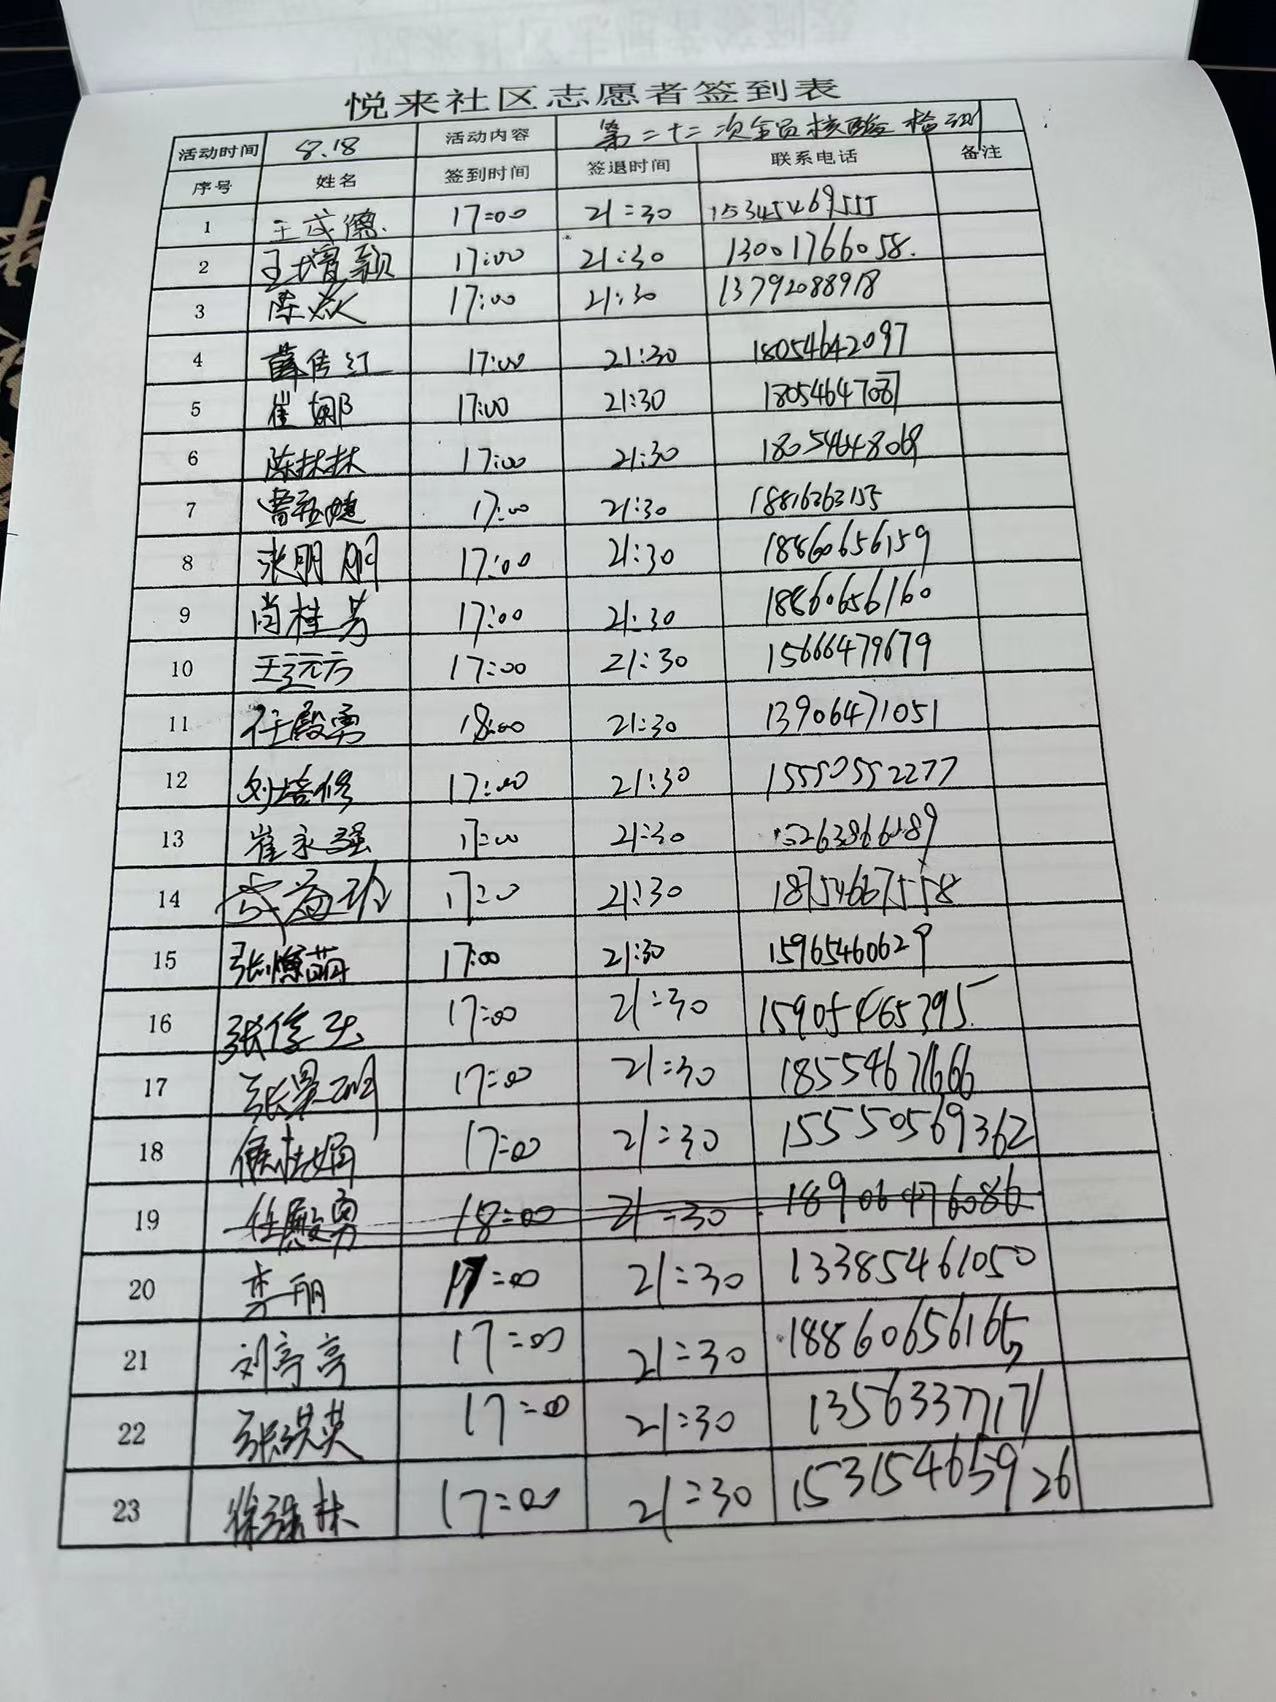 悦来社区志愿者签到表
活动时间 8.18 活动内容 第二十二次全员核酸检测
序号 姓名 签到时间 签退时间 联系电话 备注
1 王成德 17:00 21:30 15345469555
2 王增颖 17:00 21:30 13001766058.
3 陈焱 17:00 21:30 13792088918
4 薛传红 17:00 21:30 18054642097
5 崔娜 17:00 21:30 18054647087
6 陈林林 17:00 21:30 18054648069
7 17:00 21:30 18816263155
8 张明明 17:00 21:30 18860656159
9 肖桂芳 17:00 21:30 18860656160
10 王远方 17:00 21:30 15666479679
11 任殿勇 18:00 21:30 13906471051
12 刘培修 17:00 21:30 15550552277
13 崔永强 17:00 21:30 15263866089
14 17:00 21:30 18754667558
15 17:00 21:30 15965460629
16 17:00 21:30 15905465395
17 张景明 17:00 21:30 18554671666
18 侯桂娟 17:00 21:30 15550569362
19 任殿勇 18:00 21:30 18906476086
20 李丽 17:00 21:30 13385461050
21 刘亭亭 17:00 21:30 18860656165
22 张洪英 17:00 21:30 13563377171
23 徐强林 17:00 21:30 15315465926